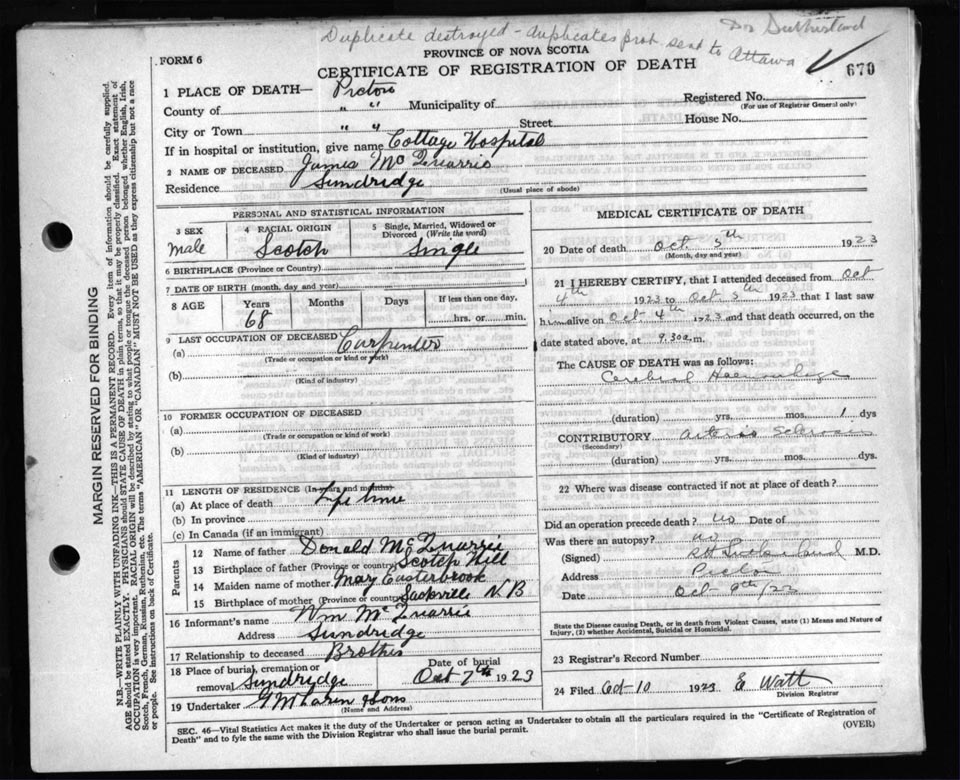 Duplicate destroyed - duplicates prob. sent to Ottawa
Dr Sutherland
670
FORM 6
PROVINCE OF NOVA SCOTIA
CERTIFICATE OF REGISTRATION OF DEATH
1 PLACE OF DEATH— Pictou
County of " " Municipality of
Registered No.
(For use of Registrar General only)
City or Town " " Street
House No.
If in hospital or institution, give name Cottage Hospital
2 NAME OF DECEASED James Mc
Residence Sundridge
(Usual place of abode)
PERSONAL AND STATISTICAL INFORMATION
3 SEX
male
4 RACIAL ORIGIN
Scotch
5 Single, Married, Widowed or Divorced (Write the word)
Single
6 BIRTHPLACE (Province or Country)
7 DATE OF BIRTH (month, day and year)
8 AGE
Years
68
Months
Days
If less than one day,
hrs. or min.
9 LAST OCCUPATION OF DECEASED
(a) Carpenter
(Trade or occupation or kind of work)
(b)
(Kind of industry)
10 FORMER OCCUPATION OF DECEASED
(a)
(Trade or occupation or kind of work)
(b)
(Kind of industry)
11 LENGTH OF RESIDENCE (In years and months)
(a) At place of death Life time
(b) In province
(c) In Canada (if an immigrant)
Parents
12 Name of father Donald Mc
13 Birthplace of father (Province or country) Scotch Hill
14 Maiden name of mother Mary Easterbrook
15 Birthplace of mother (Province or country) Sackville N B
16 Informant's name Wm Mc
Address Sundridge
17 Relationship to deceased Brother
18 Place of burial, cremation or removal Sundridge
Date of burial
Oct 7th 1923
19 Undertaker
(Name and Address)
MEDICAL CERTIFICATE OF DEATH
20 Date of death Oct. 5th 1923
(Month, day and year)
21 I HEREBY CERTIFY, that I attended deceased from Oct
4th 1923 to Oct 5th 1923 that I last saw
him alive on Oct. 4th 1923 and that death occurred, on the
date stated above, at 9.30 a.m.
The CAUSE OF DEATH was as follows:
Cerebral Haemorrhage
(duration) yrs. mos. 1 dys
CONTRIBUTORY Arterio Sclerosis
(Secondary)
(duration) yrs. mos. dys.
22 Where was disease contracted if not at place of death?
Did an operation precede death? no Date of
Was there an autopsy? no
(Signed) Sutherland M.D.
Address Pictou
Date Oct 9th/23
State the Disease causing Death, or in death from Violent Causes, state (1) Means and Nature of
Injury, (2) whether Accidental, Suicidal or Homicidal.
23 Registrar's Record Number
24 Filed Oct 10 1923 E Watt
Division Registrar
SEC. 46—Vital Statistics Act makes it the duty of the Undertaker or person acting as Undertaker to obtain all the particulars required in the "Certificate of Registration of
Death" and to fyle the same with the Division Registrar who shall issue the burial permit.
(OVER)
MARGIN RESERVED FOR BINDING
N.B.—WRITE PLAINLY WITH UNFADING INK—THIS IS A PERMANENT RECORD. Every item of information should be carefully supplied.
AGE should be stated EXACTLY. PHYSICIANS should STATE CAUSE OF DEATH in plain terms, so that it may be properly classified. Exact statement of
OCCUPATION is very important. RACIAL ORIGIN will be described by stating to what people or tongue the deceased person belonged whether English, Irish,
Scotch, French, German, Russian, Ruthenian, etc. The terms "AMERICAN" or "CANADIAN" MUST NOT BE USED as they express citizenship but not a race
or people. See instructions on back of Certificate.